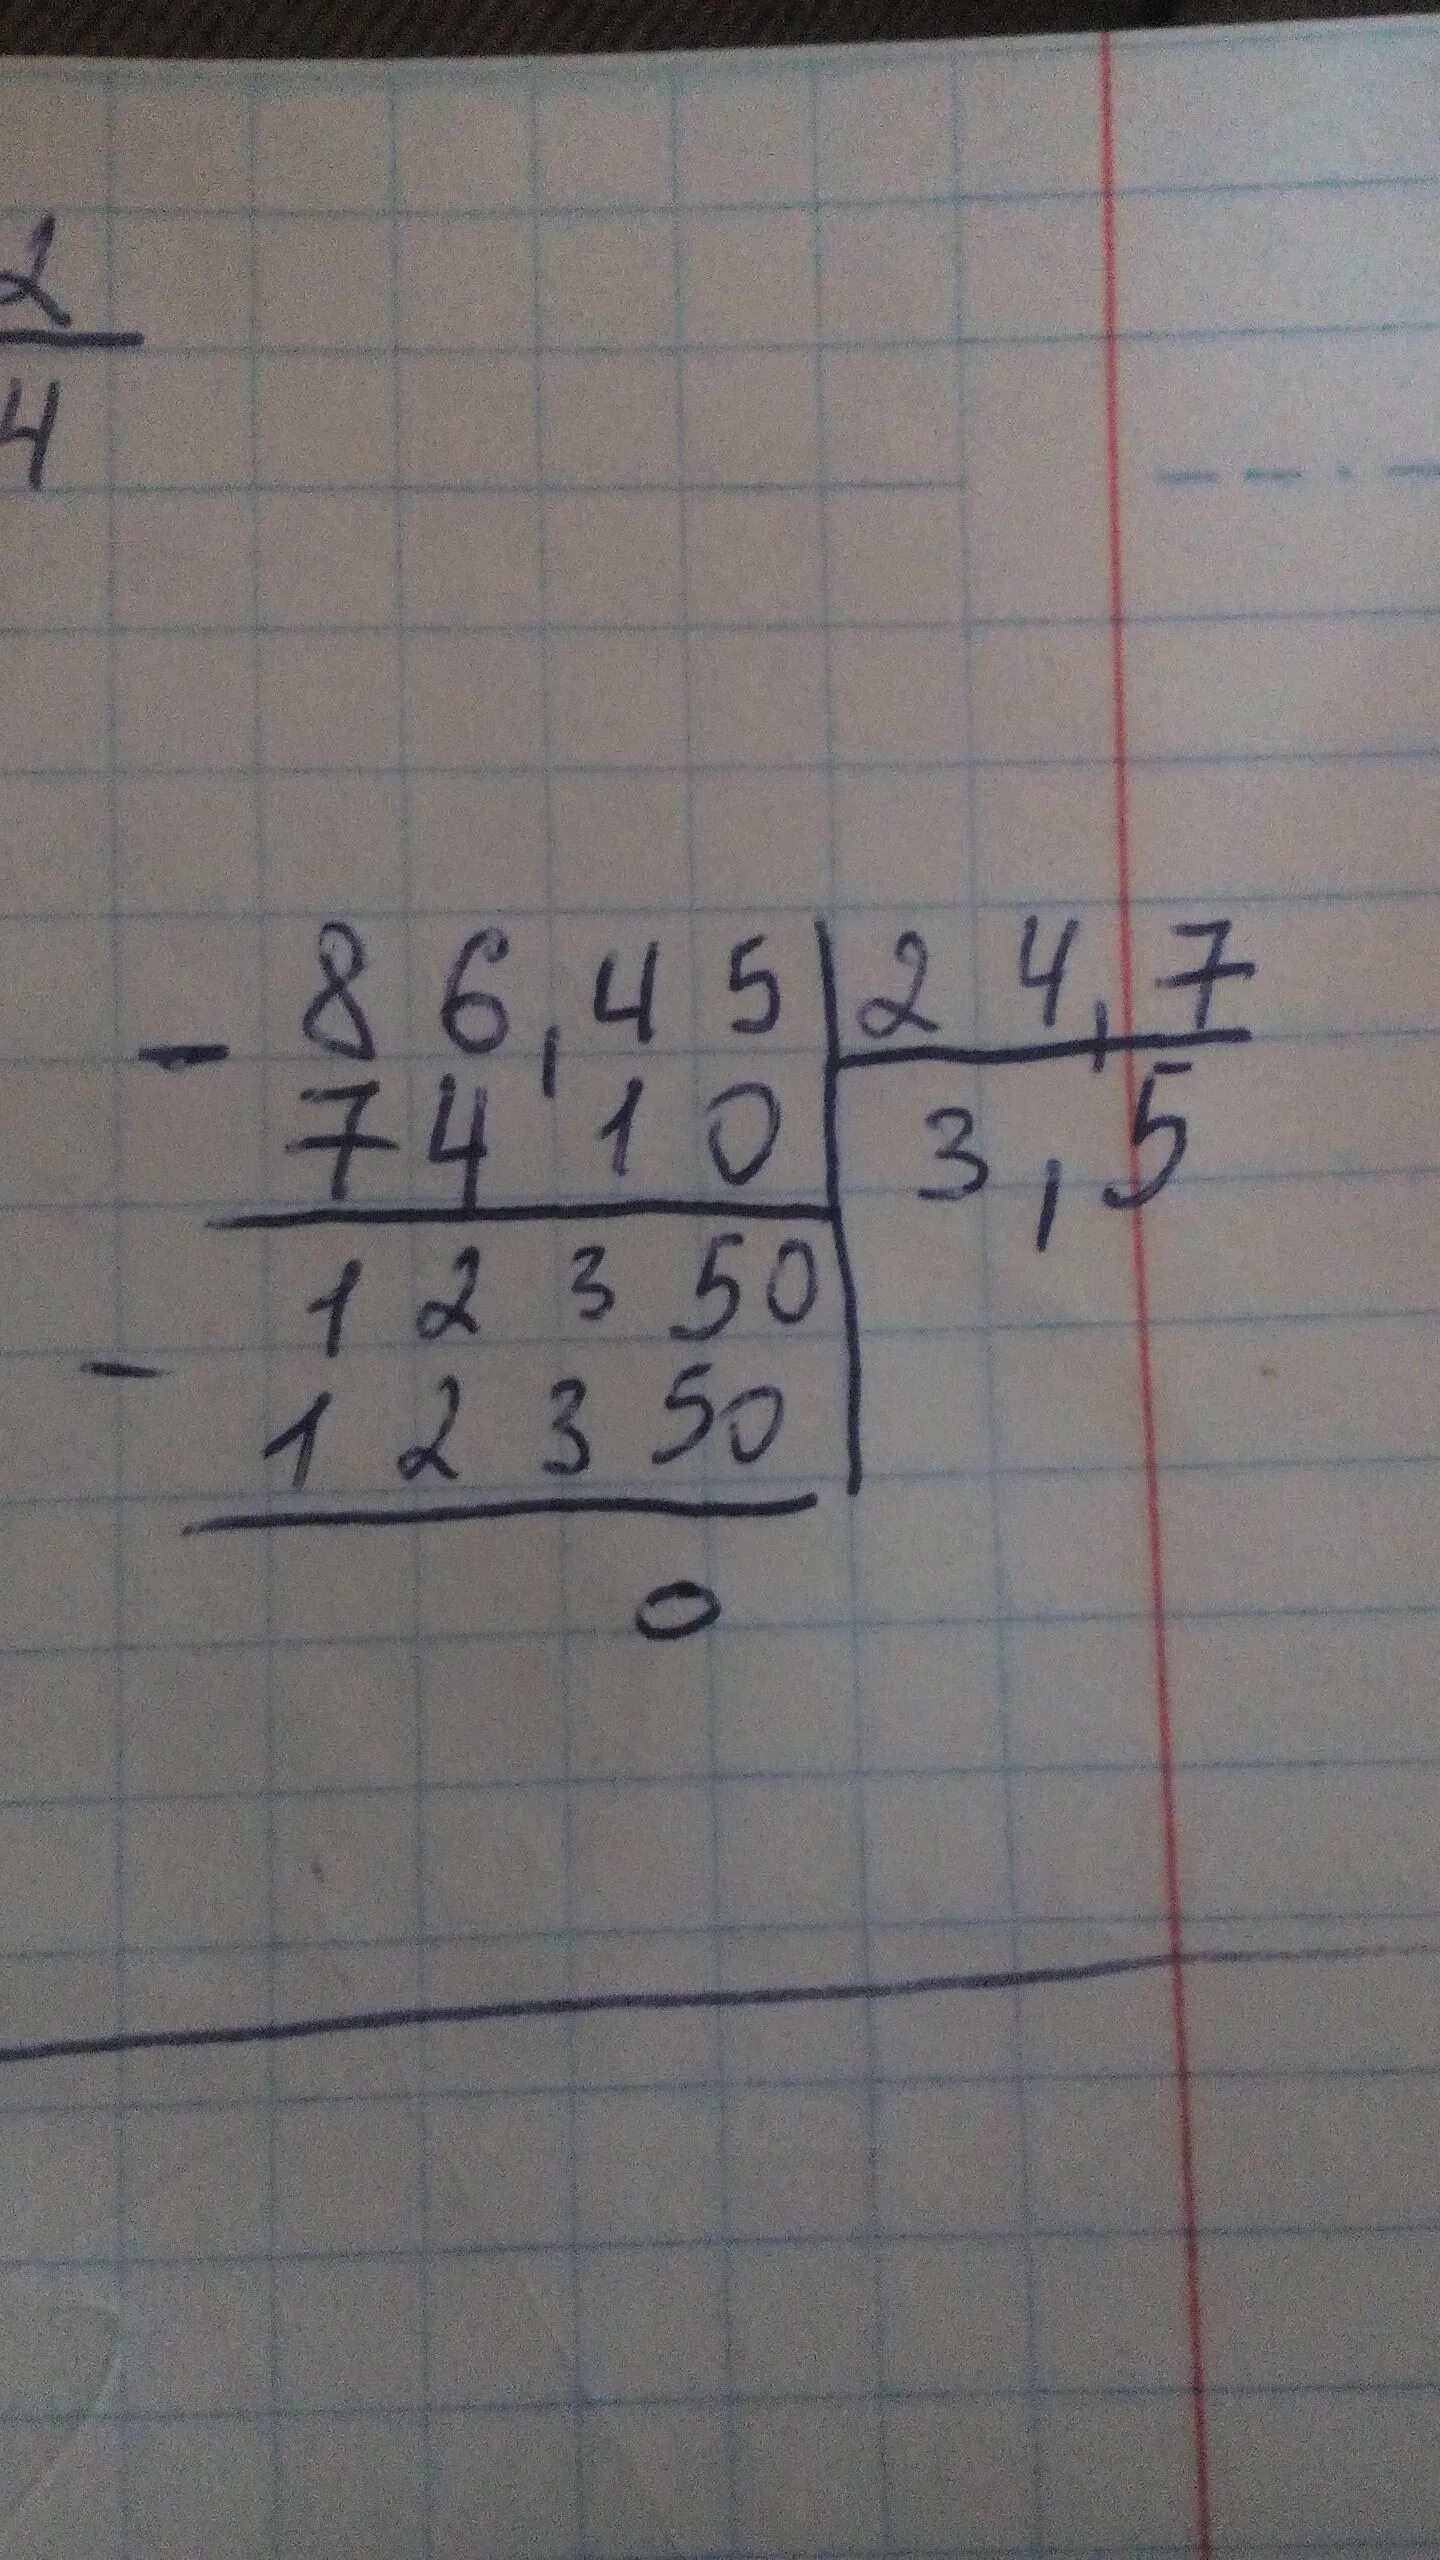 2
4
86,45 | 24,7
- 7410 | 3,5
12350
- 12350
0